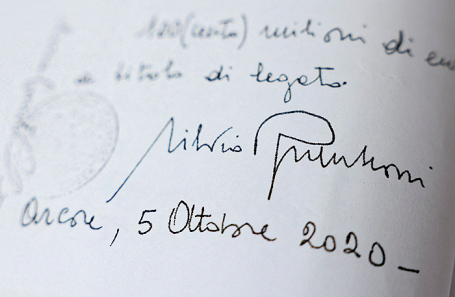 100 (cento) milioni di eu
a titolo di legato.
Silvio Berlusconi
Arcore, 5 Ottobre 2020 -